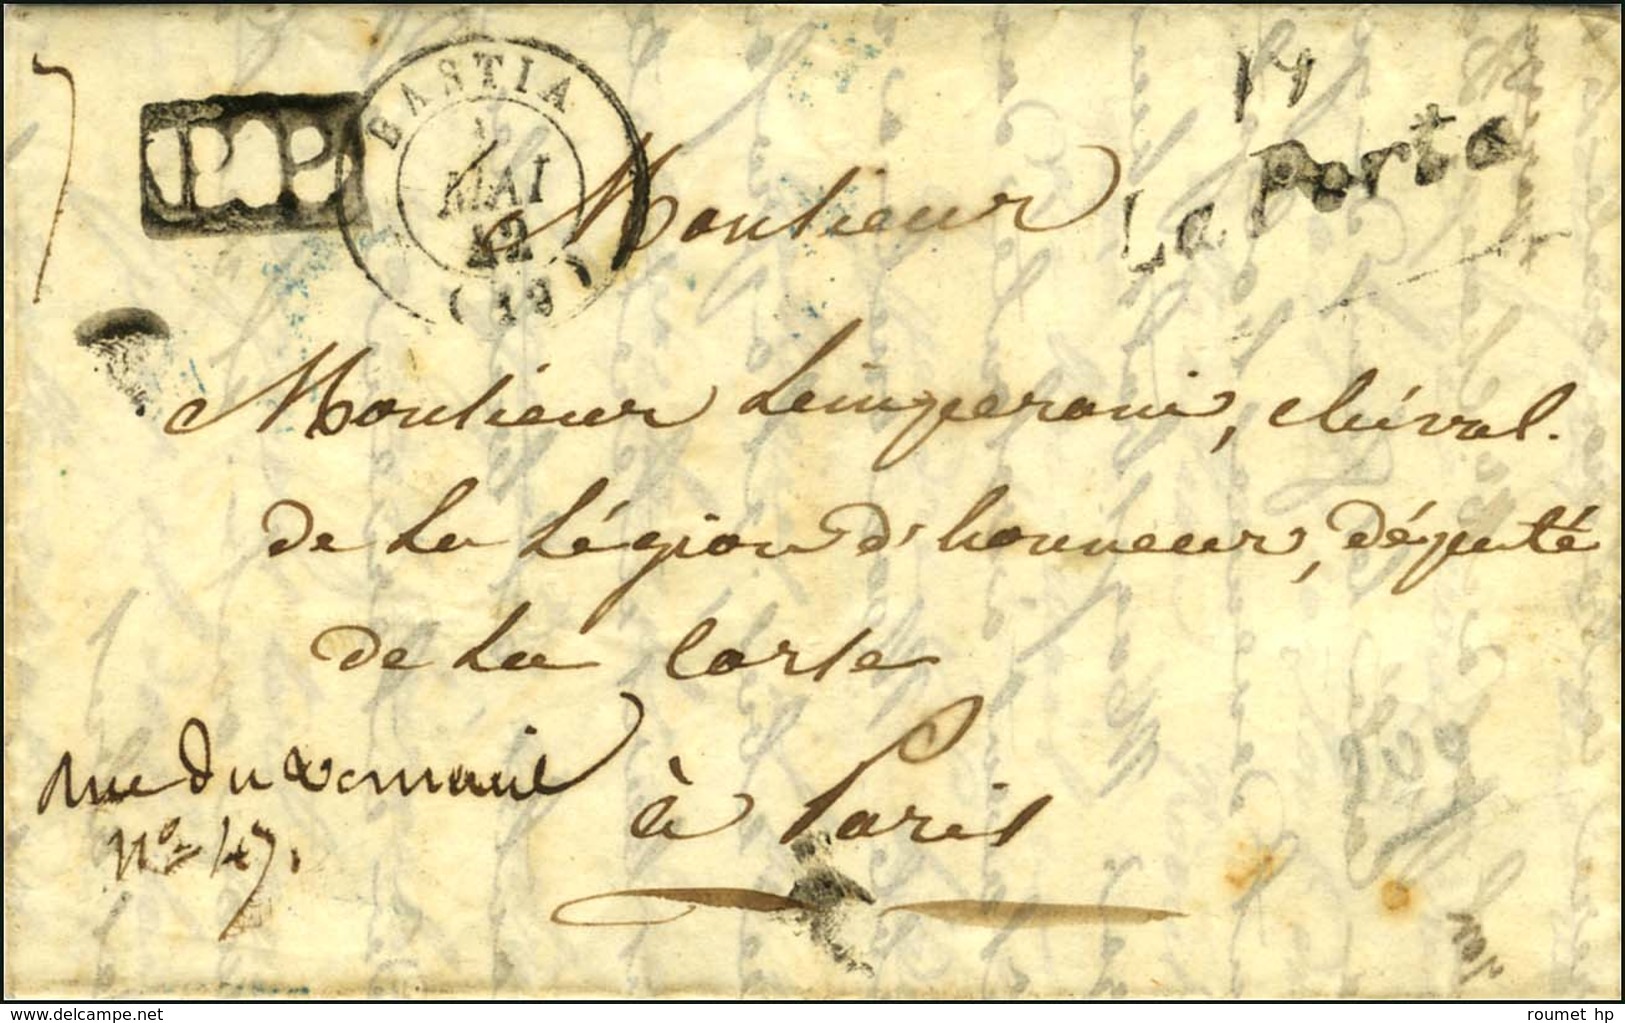 7
P.P.
BASTIA
MAI
42
(19)
19
La Porta
Monsieur
Monsieur Limperani, chéval.
de la Légion d'honneur, député
de la Corse
à Paris
rue du
N° 47.
roumet hp